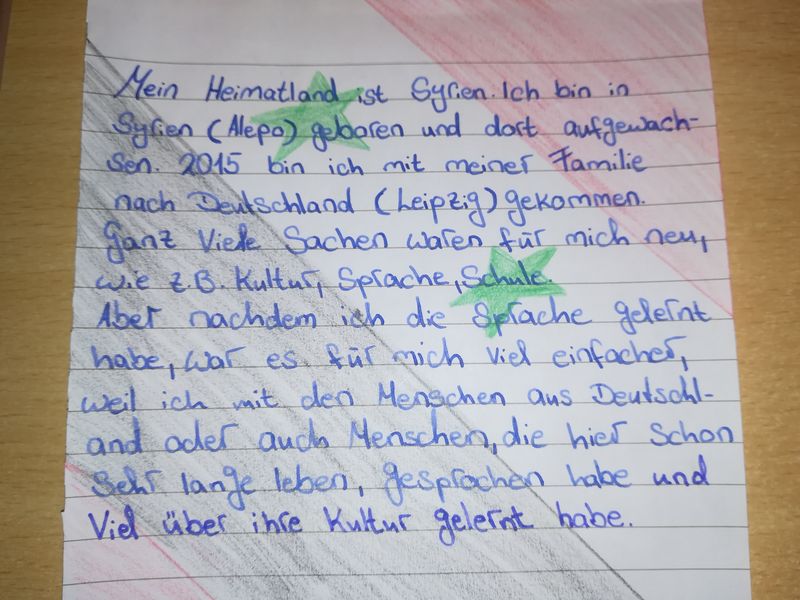 Mein Heimatland ist Syrien. Ich bin in
Syrien (Alepo) geboren und dort aufgewach-
sen. 2015 bin ich mit meiner Familie
nach Deutschland (Leipzig) gekommen.
Ganz Viele Sachen waren für mich neu,
wie z.B. Kultur, Sprache, Schule.
Aber nachdem ich die Sprache gelernt
habe, war es für mich viel einfacher,
weil ich mit den Menschen aus Deutschl-
and oder auch Menschen, die hier schon
sehr lange leben, gesprochen habe und
Viel über ihre Kultur gelernt habe.